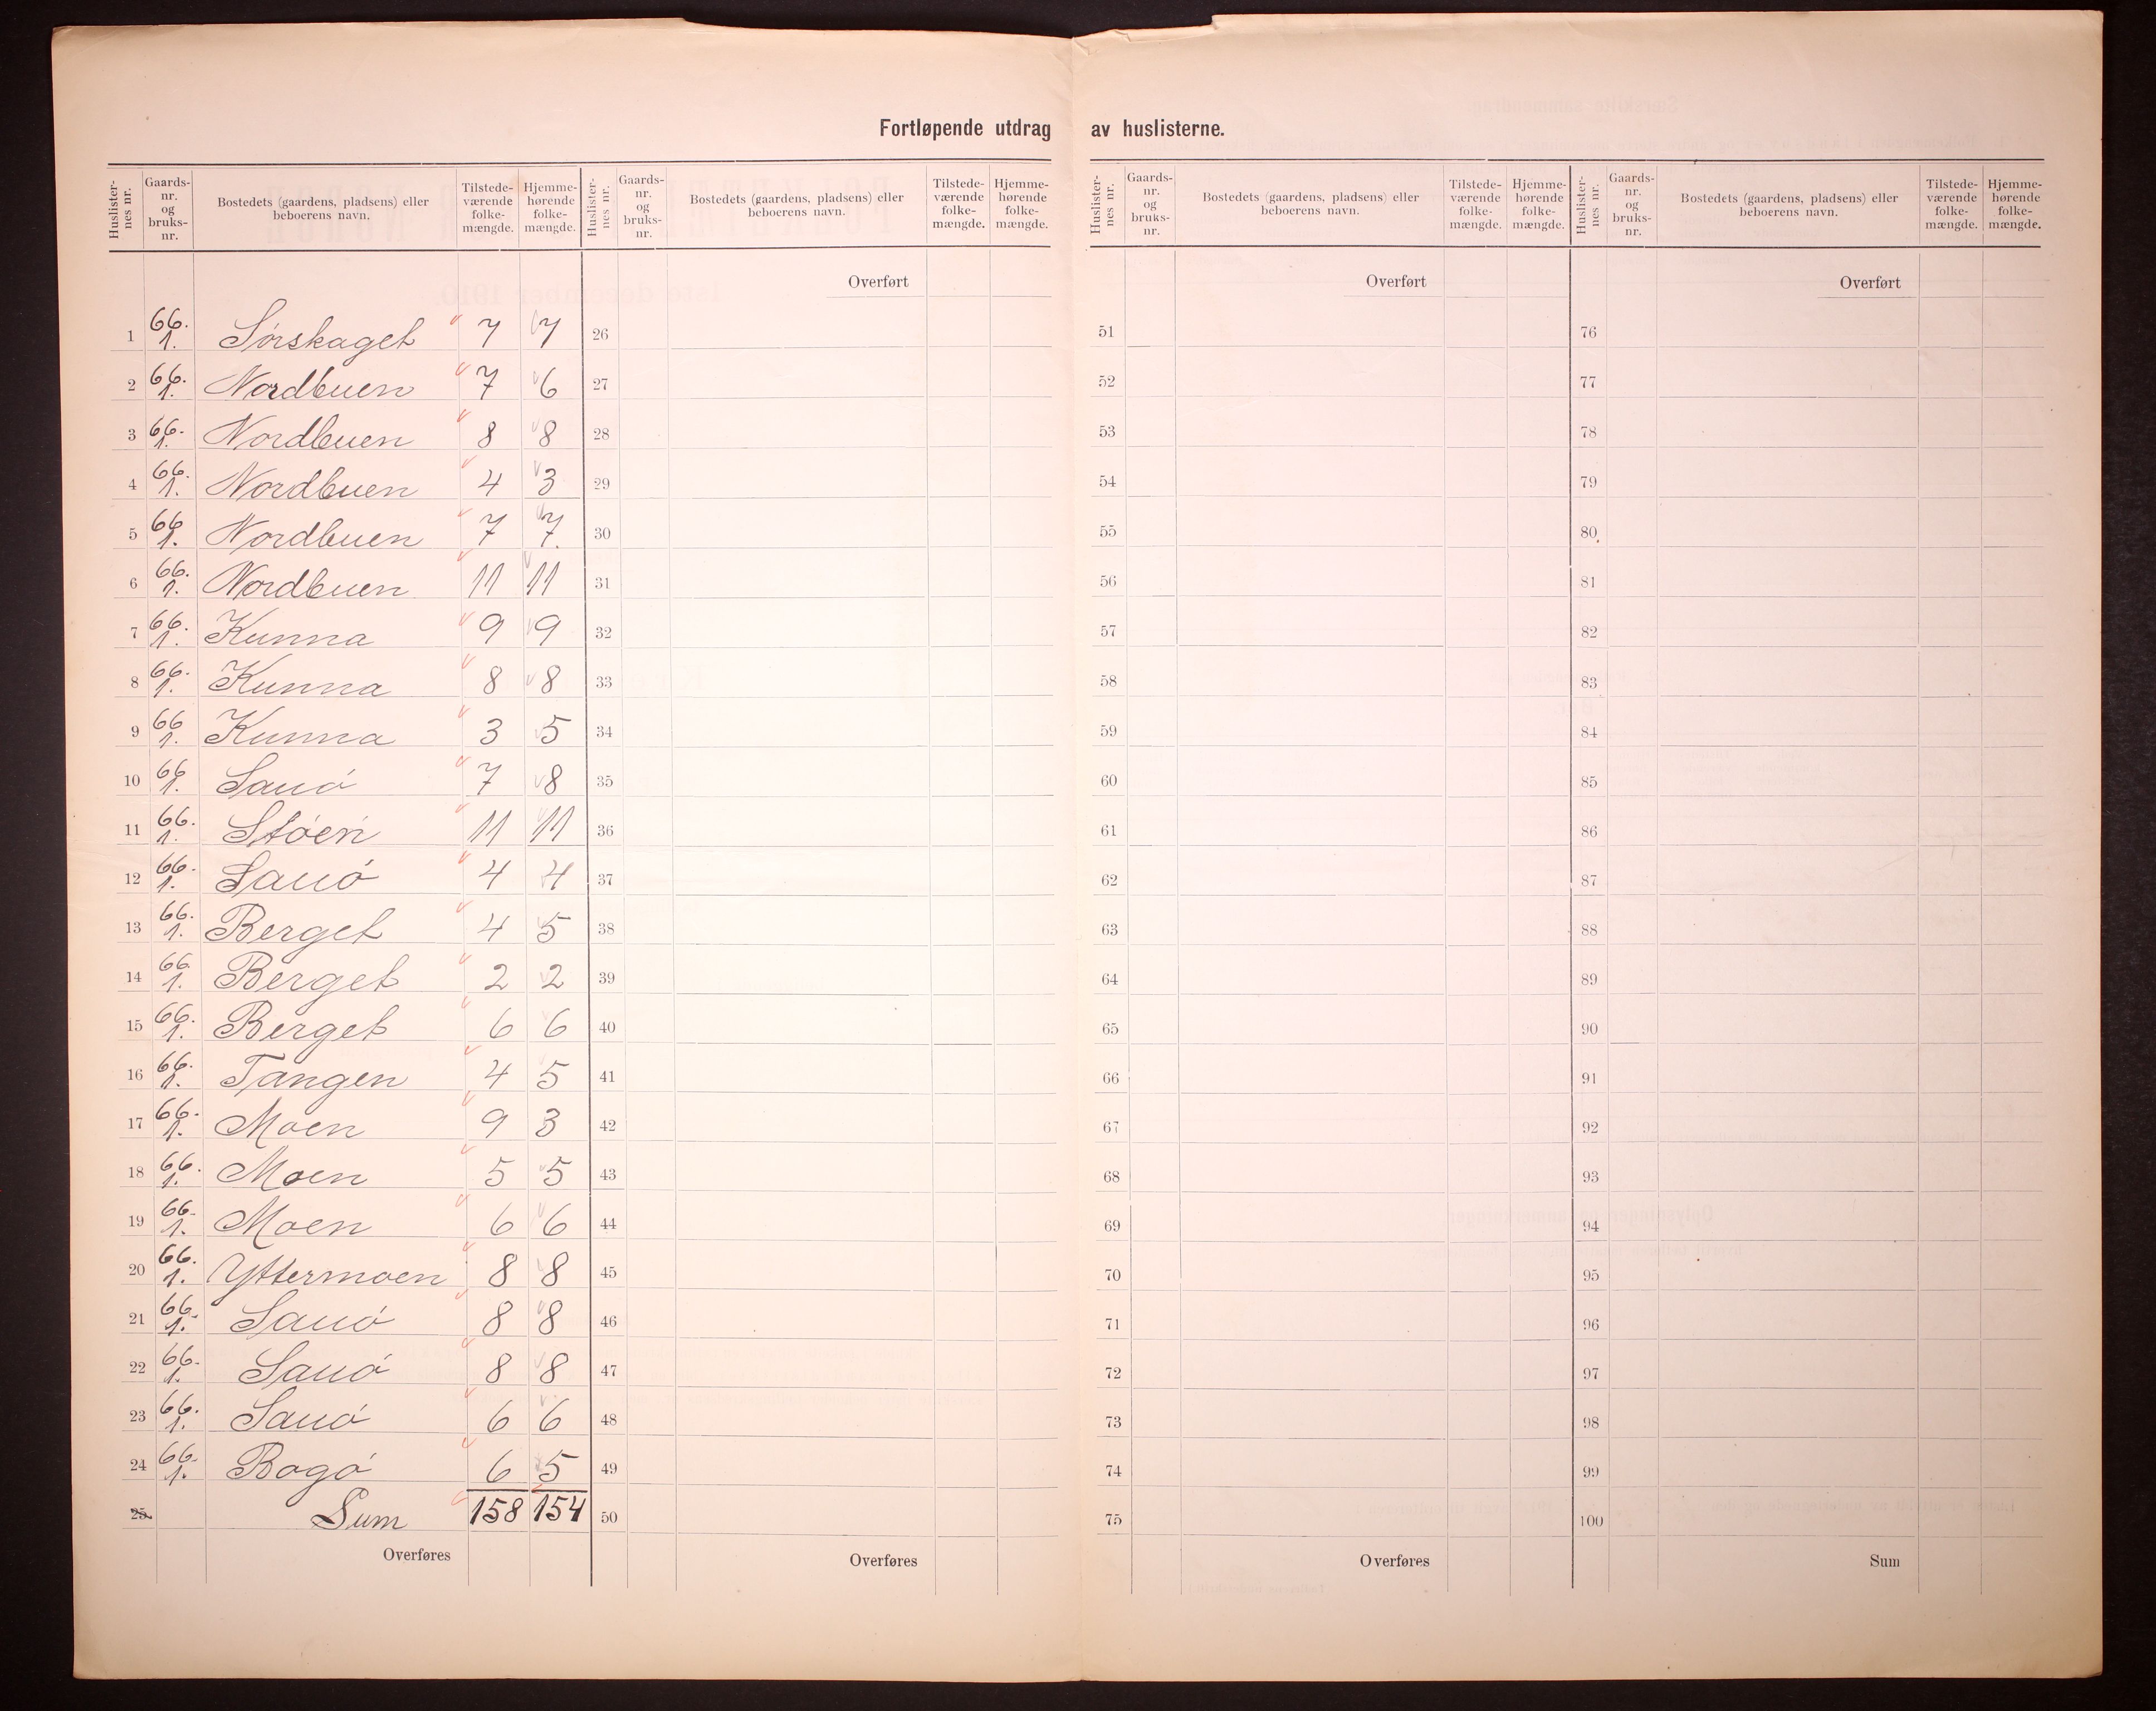 Fortløpende utdrag av huslisterne.
Huslister-nes nr. Gaards-nr. og bruks-nr. Bostedets (gaardens, pladsens) eller beboerens navn. Tilstede-værende folke-mængde. Hjemme-hørende folke-mængde.
Huslister-nes nr. Gaards-nr. og bruks-nr. Bostedets (gaardens, pladsens) eller beboerens navn. Tilstede-værende folke-mængde. Hjemme-hørende folke-mængde.
Huslister-nes nr. Gaards-nr. og bruks-nr. Bostedets (gaardens, pladsens) eller beboerens navn. Tilstede-værende folke-mængde. Hjemme-hørende folke-mængde.
Huslister-nes nr. Gaards-nr. og bruks-nr. Bostedets (gaardens, pladsens) eller beboerens navn. Tilstede-værende folke-mængde. Hjemme-hørende folke-mængde.
Overført Overført Overført
1 66. 1. Sørskaget 7 7 26 51 76
2 66. 1. Nordbuen 7 6 27 52 77
3 66. 1. Nordbuen 8 8 28 53 78
4 66. 1. Nordbuen 4 3 29 54 79
5 66 1. Nordbuen 7 7. 30 55 80
6 66. 1. Nordbuen 11 11 31 56 81
7 66. 1. Kunna 9 9 32 57 82
8 66. 1. Kunna 8 8 33 58 83
9 66 1. Kunna 3 5 34 59 84
10 66 1. Sauø 7 8 35 60 85
11 66. 1. Støen 11 11 36 61 86
12 66. 1. Sauø 4 4 37 62 87
13 66. 1. Berget 4 5 38 63 88
14 66. 1. Berget 2 2 39 64 89
15 66. 1. Berget 6 6 40 65 90
16 66. 1. Tangen 4 5 41 66 91
17 66. 1. Moen 9 3 42 67 92
18 66. 1. Moen 5 5 43 68 93
19 66. 1. Moen 6 6 44 69 94
20 66. 1. Yttermoen 8 8 45 70 95
21 66. 1. Sauø 8 8 46 71 96
22 66. 1. Sauø 8 8 47 72 97
23 66. 1. Sauø 6 6 48 73 98
24 66. 1. Bogø 6 5 49 74 99
25 Sum 158 154 50 75 100
Overføres Overføres Overføres Sum